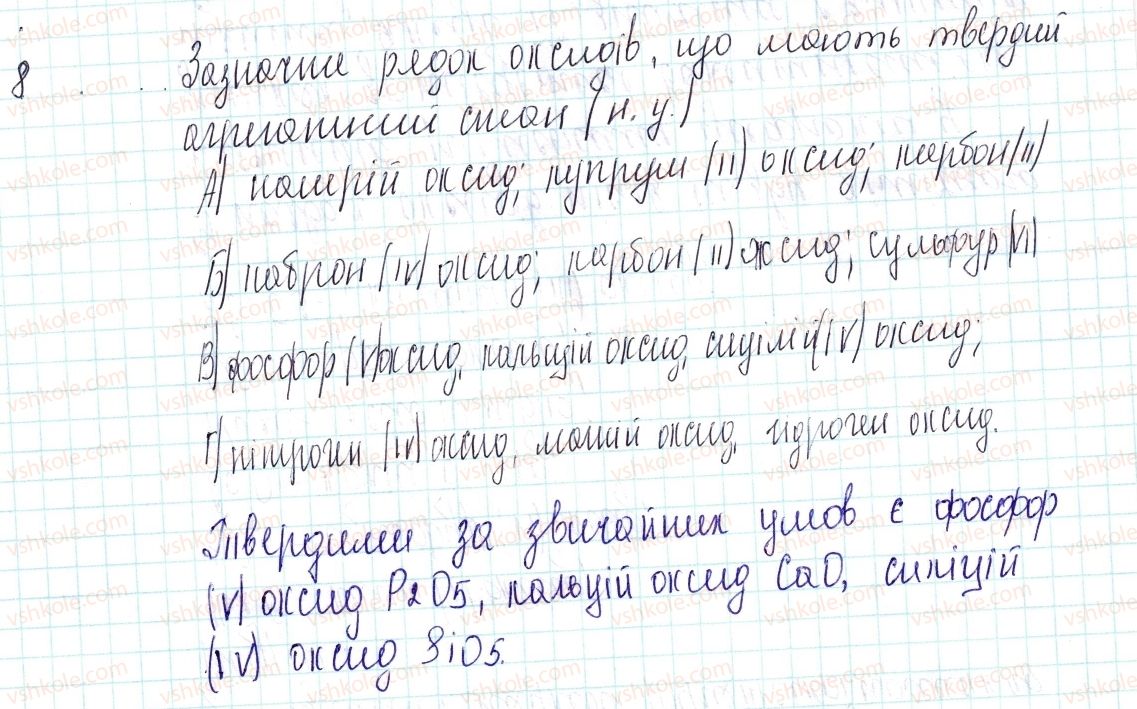 8
Зазначте рядок оксидів, що мають твердий
агрегатний стан (н. у.)
А) натрій оксид; купрум (II) оксид; карбон (II)
Б) каброн (IV) оксид; карбон (II) оксид; сульфур (VI)
В) фосфор (V) оксид, кальцій оксид, силіцій (IV) оксид;
Г) нітроген (IV) оксид, магній оксид, гідроген оксид.
Твердими за звичайних умов є фосфор
(V) оксид P2O5, кальцій оксид CaO, силіцій
(IV) оксид SiO5.